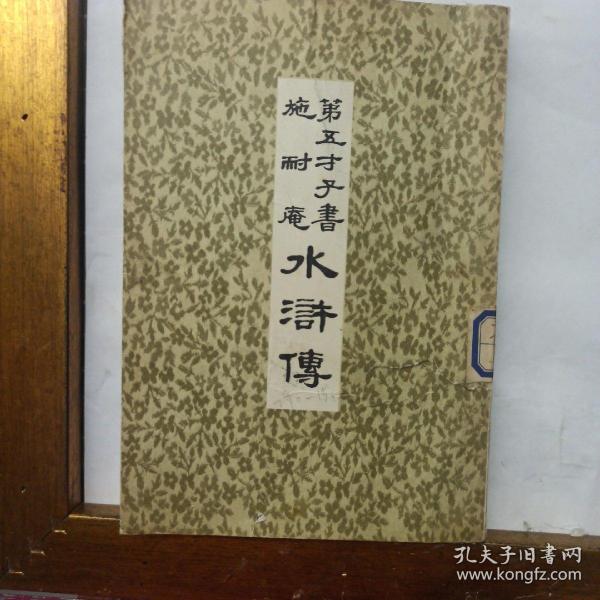 第五才子書
施耐庵
水滸傳
孔夫子旧書网
www.kongfz.com